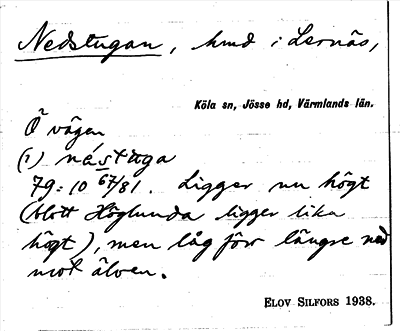 Nedstugan, hmd i Lernäs,
Köla sn, Jösse hd, Värmlands län.
Ö vägen
(i) nástuga
79:10 67/81. Ligger nu högt
(blott Höglunda ligger lika
högt), men låg förr längre ned
mot älven.
ELOV SILFORS 1938.